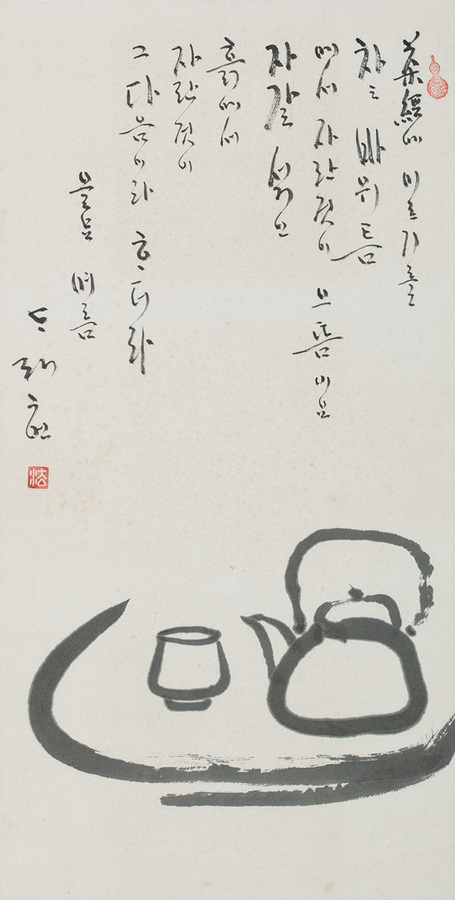 茶經에 이르기를
차는 바위틈
에서 자란 것이 으뜸이요
자갈 섞인
흙에서
자란 것이
그 다음이라 ᄒᆞ더라
여름